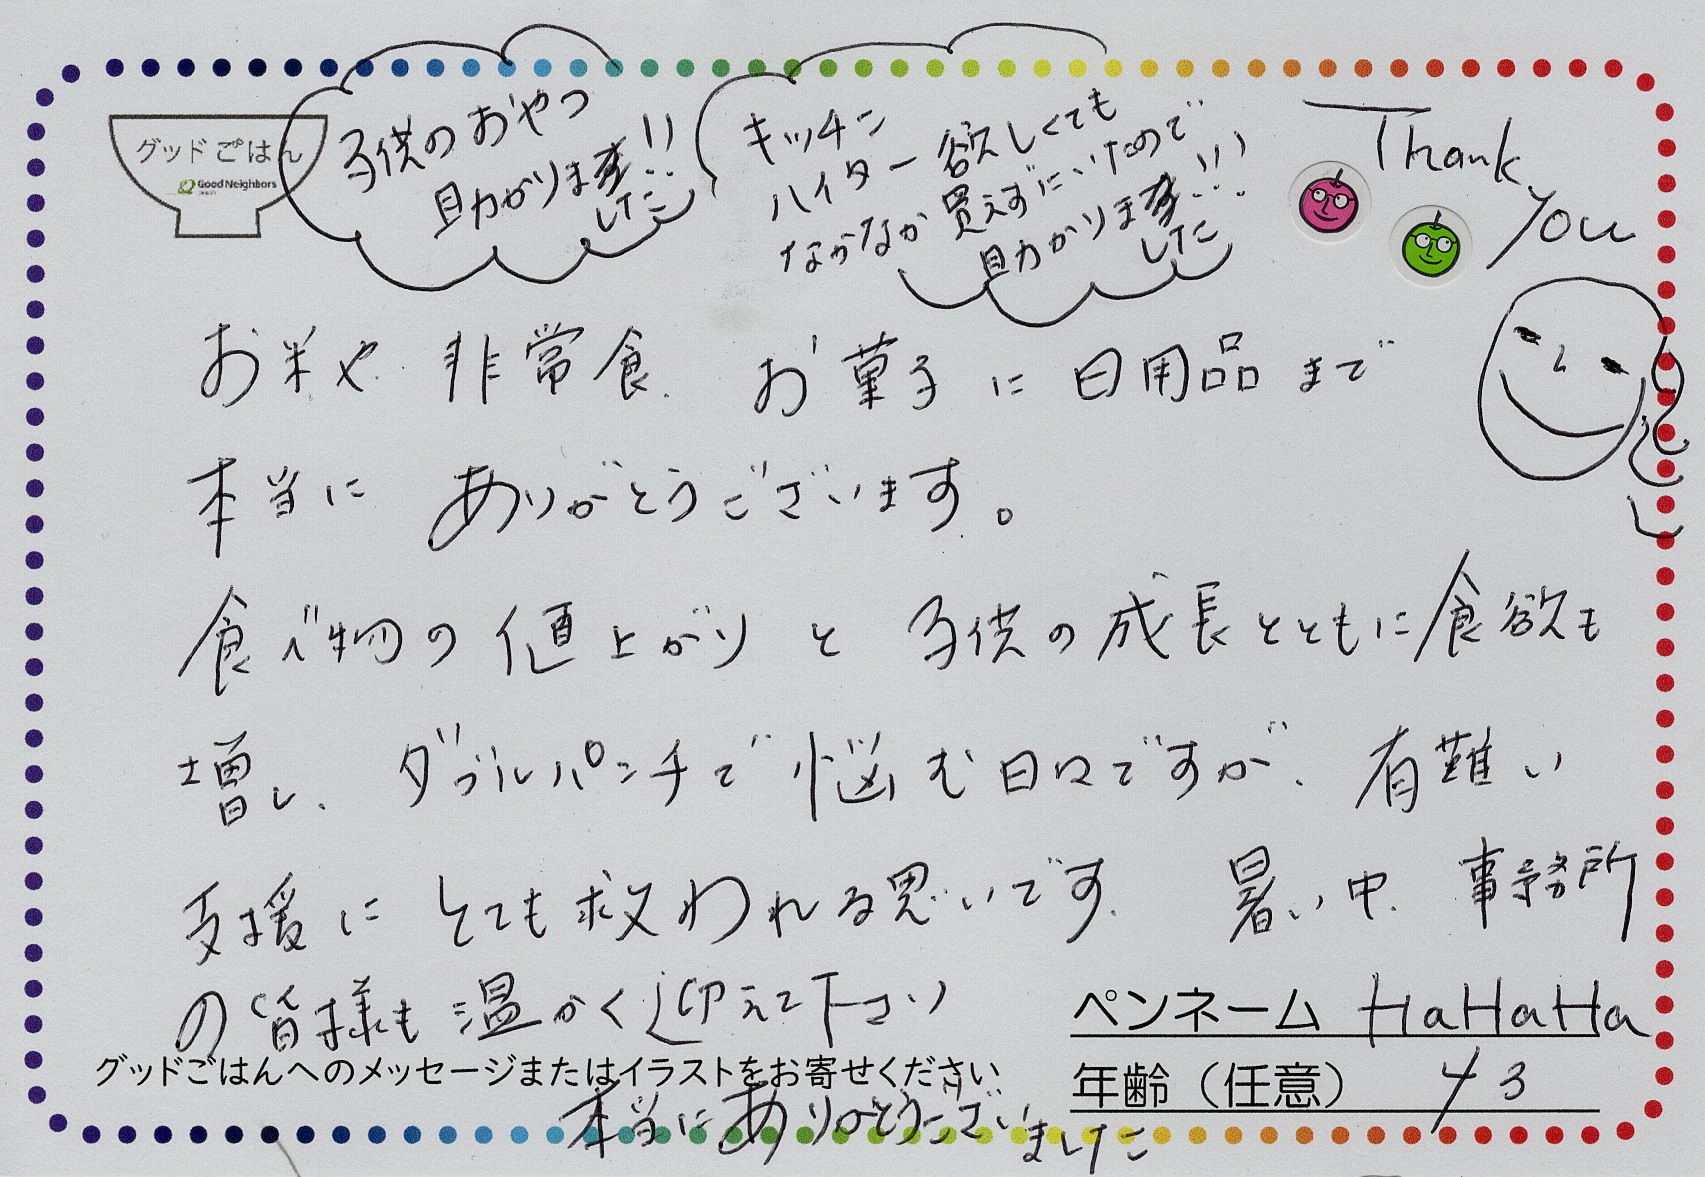 グッドごはん
GoodNeighbors
子供のおやつ
助かりました!!
キッチン
ハイター欲しくても
なかなか買えずにいたので
助かりました!!!
Thank
You
お米や 非常食、お菓子に日用品まで
本当に ありがとうございます。
食べ物の値上がりと 子供の成長とともに食欲も
増し、ダブルパンチで悩む日々ですが、有難い
支援に とても救われる思いです、暑い中、事務所
の皆様も温かく迎えて下さり
ペンネーム HaHaHa
グッドごはんへのメッセージまたはイラストをお寄せください
年齢（任意） 43
本当にありがとうございました